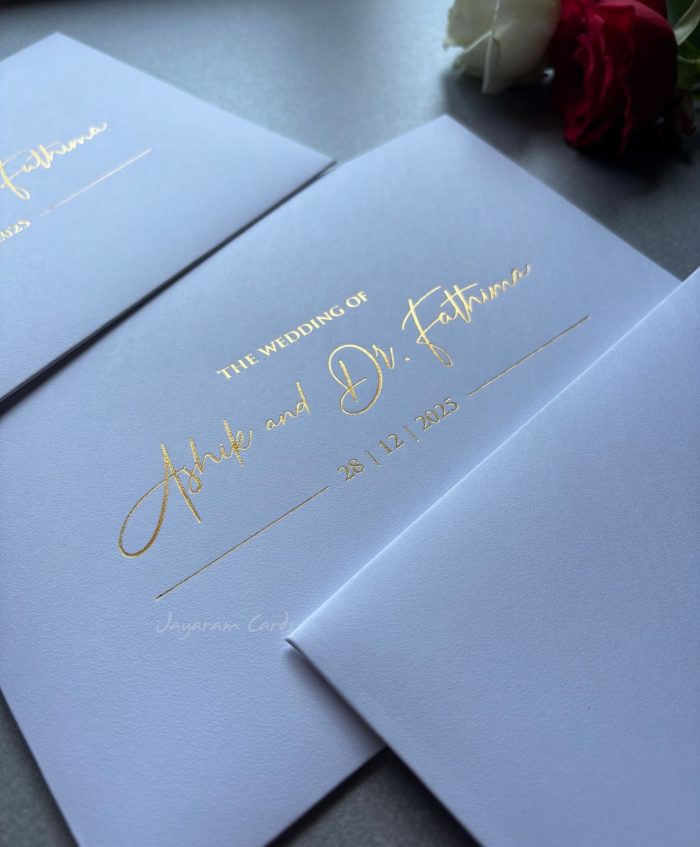 Fathima
2025
THE WEDDING OF
Ashik and Dr. Fathima
28 | 12 | 2025
Jayaram Cards